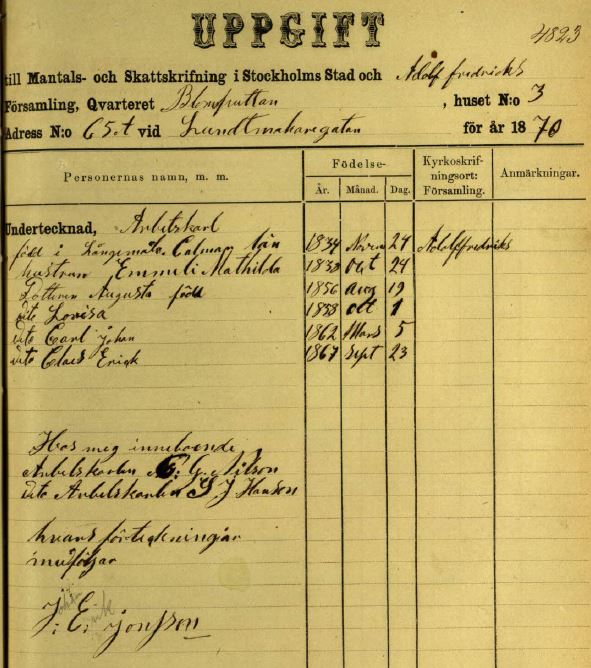 UPPGIFT
4823
till Mantals- och Skattskrifning i Stockholms Stad och Adolf fredricks
Församling, Qvarteret , huset N:o 3
Adress N:o 65 vid Luntmakaregatan för år 1870
Personernas namn, m. m.
Födelse-
År. Månad. Dag.
Kyrkoskrif-
ningsort:
Församling.
Anmärkningar.
Undertecknad, Arbetskarl
född i Långemåla Calmar län 1834 Novem 24 Adolffredriks
hustrun Emmeli Mathilda 1838 Oct 24
Dottren Augusta född 1856 Aug 19
dito Lovisa 1858 Oct 1
dito Carl Johan 1862 Mars 5
dito Claes Erick 1867 Sept 23
Hos meg inneboende
Arbetskarlen G. Nilson
dito Arbetskarlen J Hanson
hvars förtekningar
medföljer
J. E. Jonsson
Johan Erik